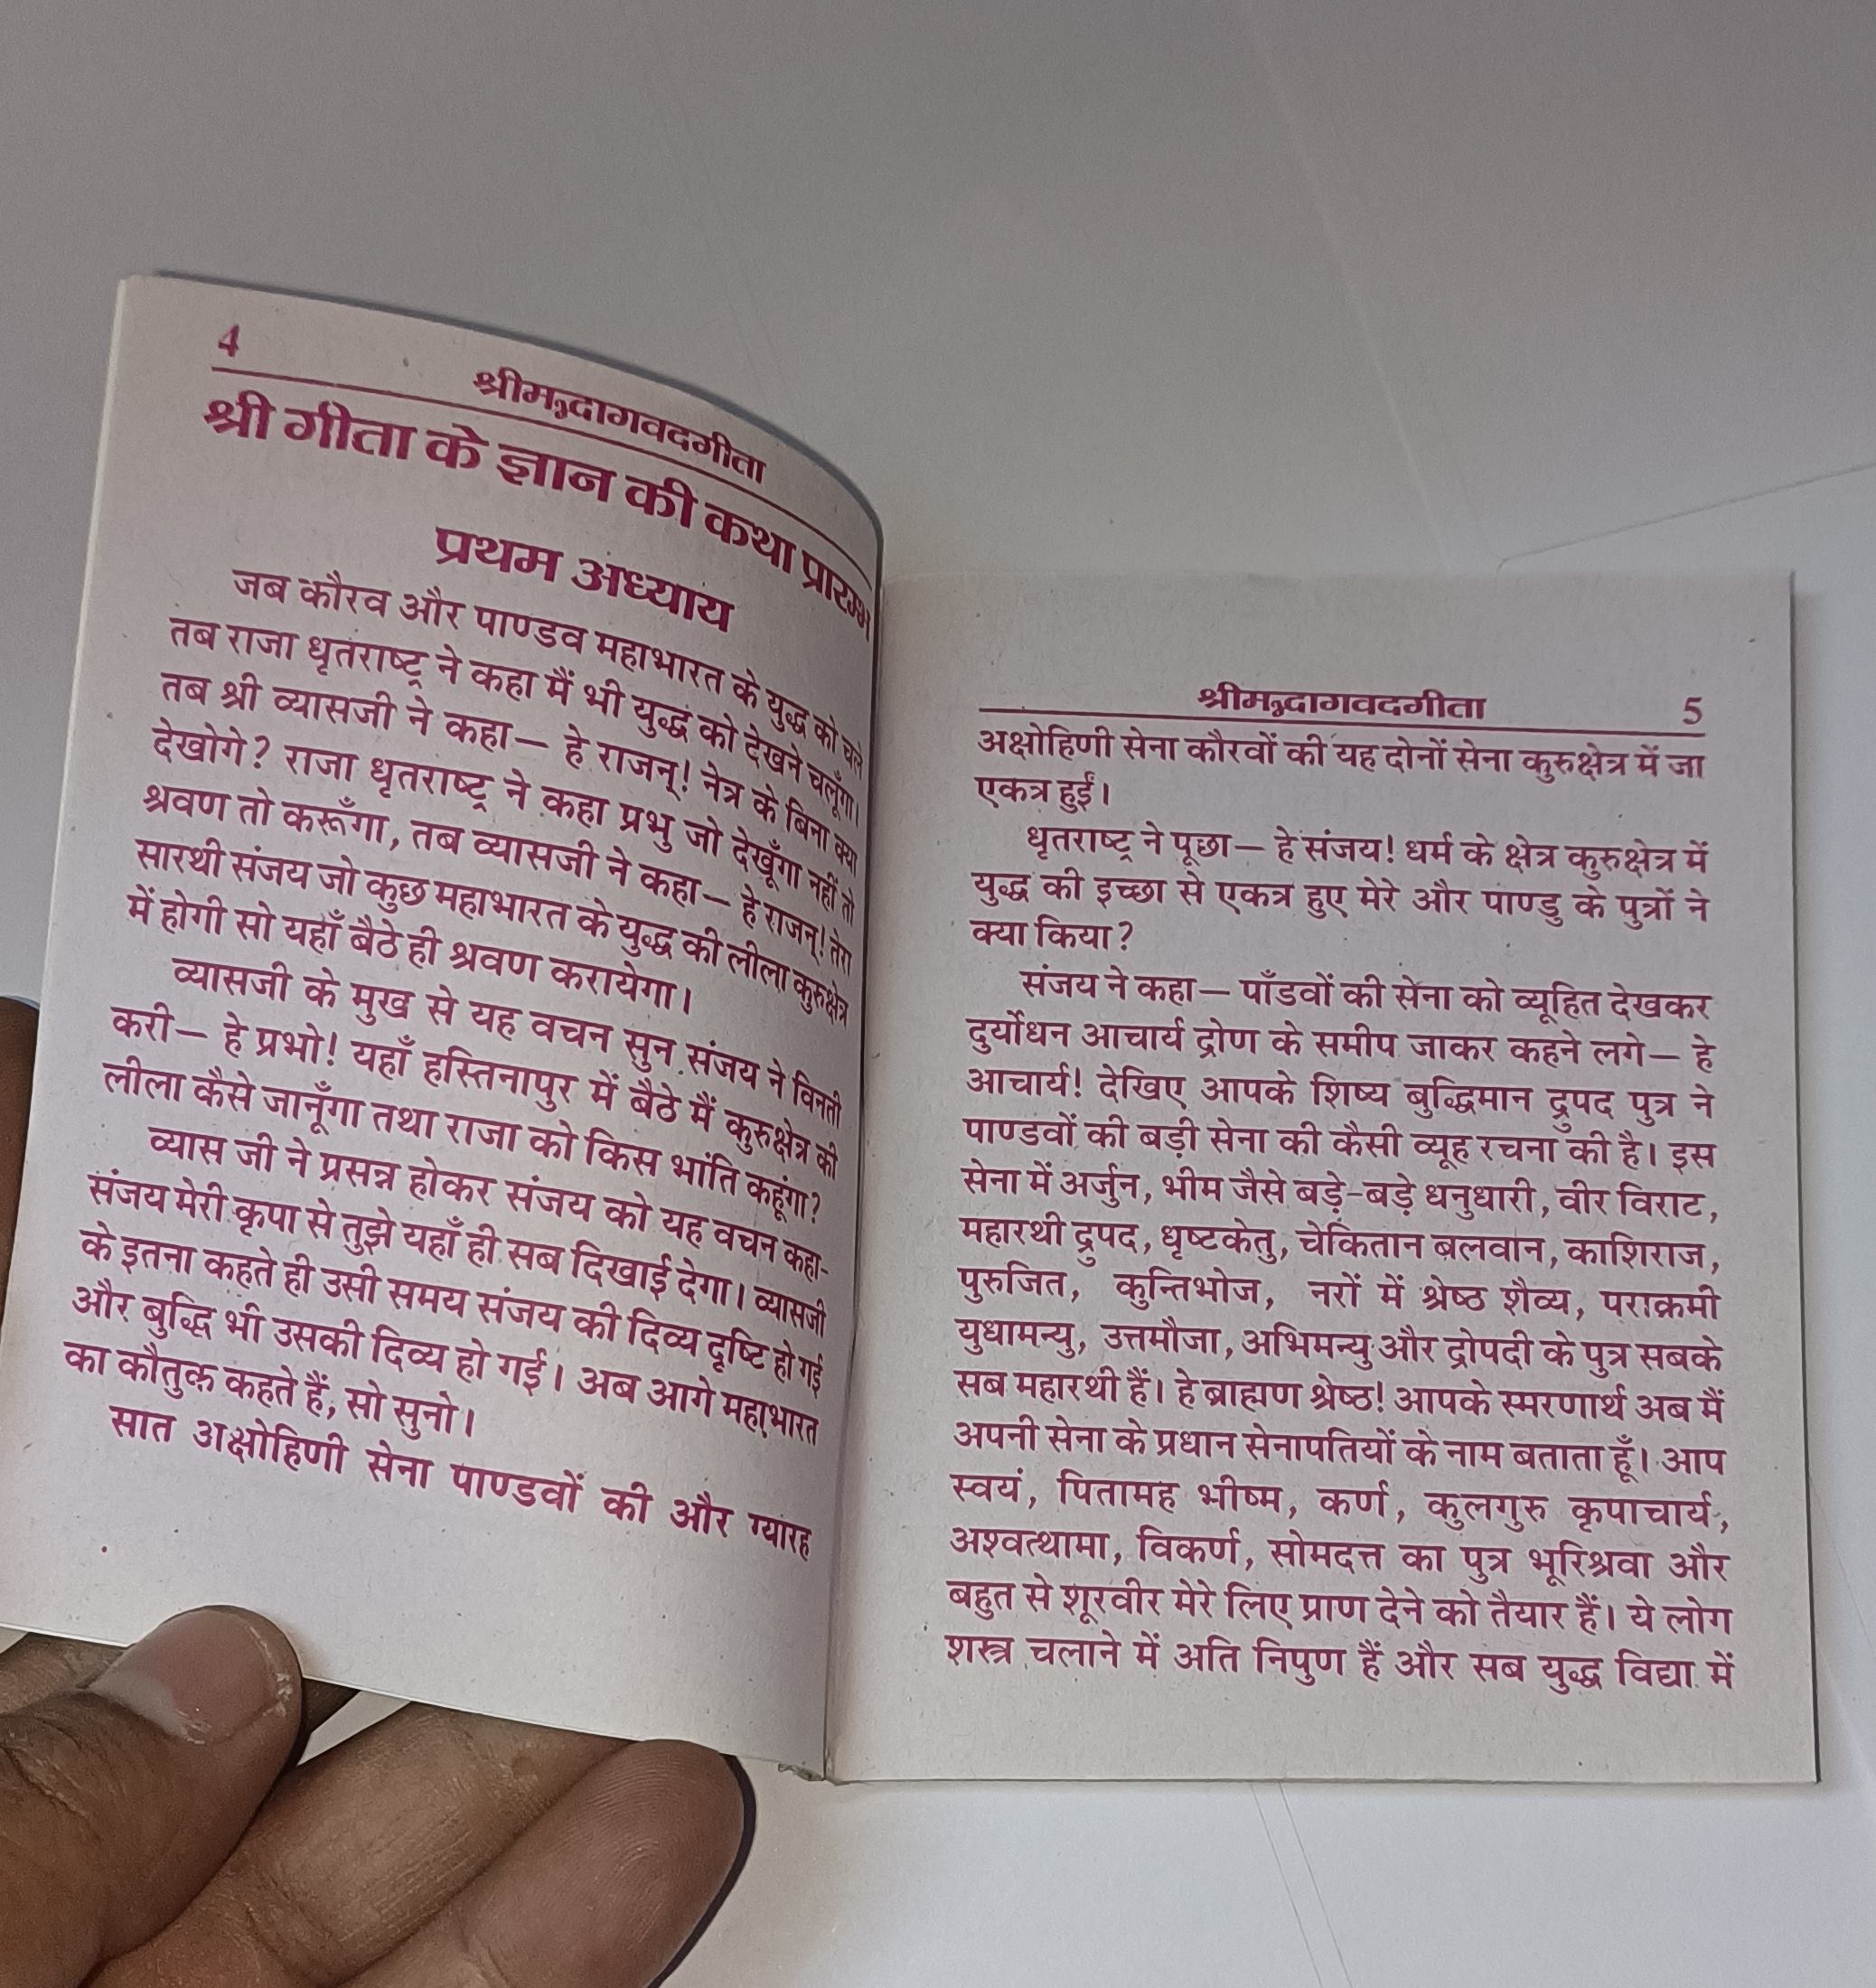 4
श्रीमद्भागवदगीता
श्री गीता के ज्ञान की कथा प्रारम्भ
प्रथम अध्याय
जब कौरव और पाण्डव महाभारत के युद्ध को चले
तब राजा धृतराष्ट्र ने कहा मैं भी युद्ध को देखने चलूँगा।
तब श्री व्यासजी ने कहा— हे राजन्! नेत्र के बिना क्या
देखोगे? राजा धृतराष्ट्र ने कहा प्रभु जो देखूँगा नहीं तो
श्रवण तो करूँगा, तब व्यासजी ने कहा— हे राजन्! तेरा
सारथी संजय जो कुछ महाभारत के युद्ध की लीला कुरुक्षेत्र
में होगी सो यहाँ बैठे ही श्रवण करायेगा।
व्यासजी के मुख से यह वचन सुन संजय ने विनती
करी— हे प्रभो! यहाँ हस्तिनापुर में बैठे मैं कुरुक्षेत्र की
लीला कैसे जानूँगा तथा राजा को किस भांति कहूंगा?
व्यास जी ने प्रसन्न होकर संजय को यह वचन कहा-
संजय मेरी कृपा से तुझे यहाँ ही सब दिखाई देगा। व्यासजी
के इतना कहते ही उसी समय संजय की दिव्य दृष्टि हो गई
और बुद्धि भी उसकी दिव्य हो गई। अब आगे महाभारत
का कौतुक कहते हैं, सो सुनो।
सात अक्षोहिणी सेना पाण्डवों की और ग्यारह
श्रीमद्भागवदगीता 5
अक्षोहिणी सेना कौरवों की यह दोनों सेना कुरुक्षेत्र में जा
एकत्र हुईं।
धृतराष्ट्र ने पूछा— हे संजय! धर्म के क्षेत्र कुरुक्षेत्र में
युद्ध की इच्छा से एकत्र हुए मेरे और पाण्डु के पुत्रों ने
क्या किया?
संजय ने कहा— पाँडवों की सेना को व्यूहित देखकर
दुर्योधन आचार्य द्रोण के समीप जाकर कहने लगे— हे
आचार्य! देखिए आपके शिष्य बुद्धिमान द्रुपद पुत्र ने
पाण्डवों की बड़ी सेना की कैसी व्यूह रचना की है। इस
सेना में अर्जुन, भीम जैसे बड़े-बड़े धनुधारी, वीर विराट,
महारथी द्रुपद, धृष्टकेतु, चेकितान बलवान, काशिराज,
पुरुजित, कुन्तिभोज, नरों में श्रेष्ठ शैव्य, पराक्रमी
युधामन्यु, उत्तमौजा, अभिमन्यु और द्रोपदी के पुत्र सबके
सब महारथी हैं। हे ब्राह्मण श्रेष्ठ! आपके स्मरणार्थ अब मैं
अपनी सेना के प्रधान सेनापतियों के नाम बताता हूँ। आप
स्वयं, पितामह भीष्म, कर्ण, कुलगुरु कृपाचार्य,
अश्वत्थामा, विकर्ण, सोमदत्त का पुत्र भूरिश्रवा और
बहुत से शूरवीर मेरे लिए प्राण देने को तैयार हैं। ये लोग
शस्त्र चलाने में अति निपुण हैं और सब युद्ध विद्या में